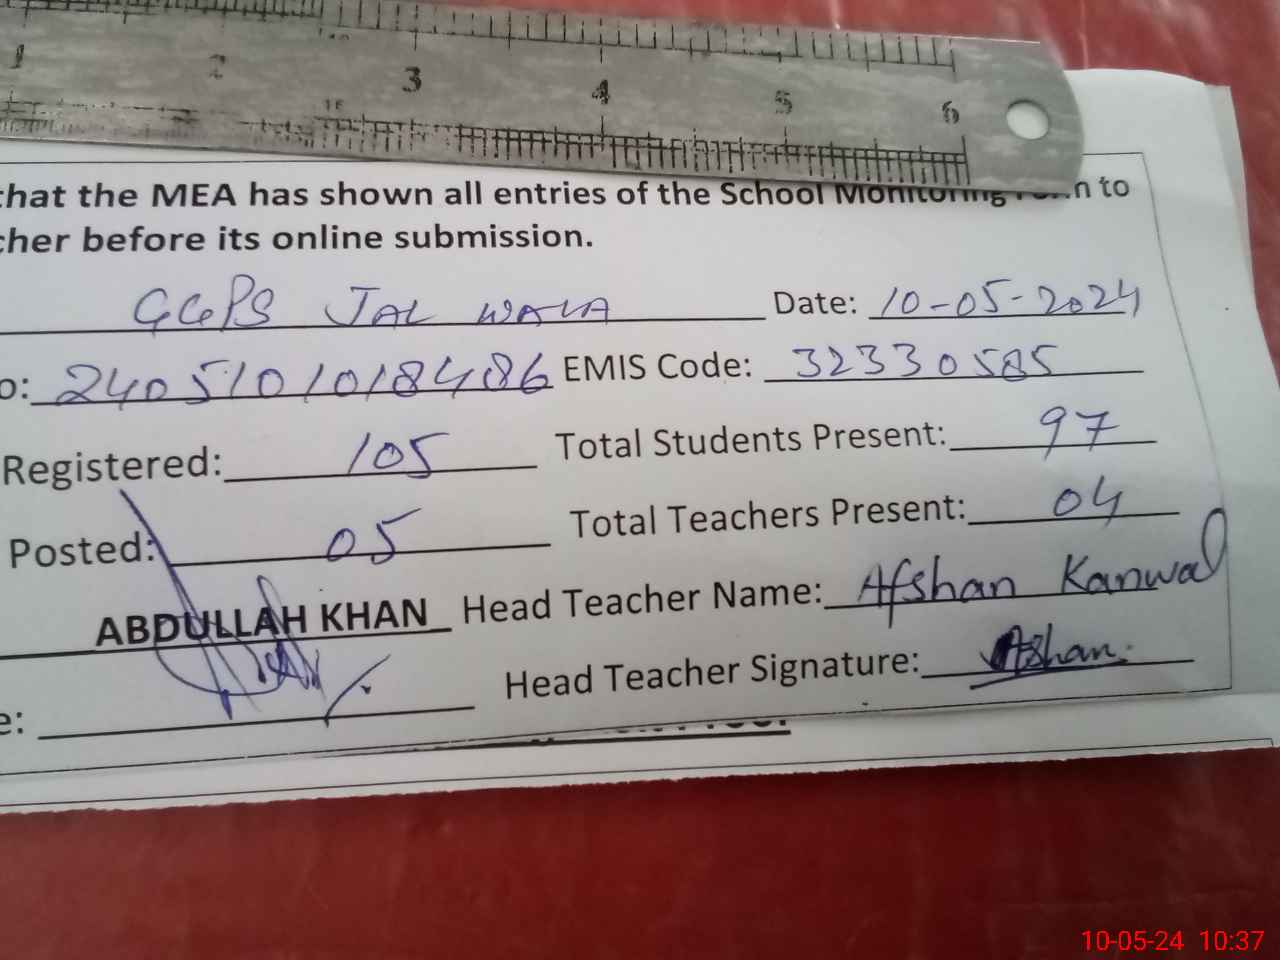 1 2 3 4 5 6
that the MEA has shown all entries of the School Monitoring Form to
cher before its online submission.
GGPS JAL WALA Date: 10-05-2024
o: 240510101848６ EMIS Code: 32330585
Registered: 105 Total Students Present: 97
Posted: 05 Total Teachers Present: 04
ABDULLAH KHAN Head Teacher Name: Afshan Kanwal
e: Head Teacher Signature: Afshan.
10-05-24 10:37